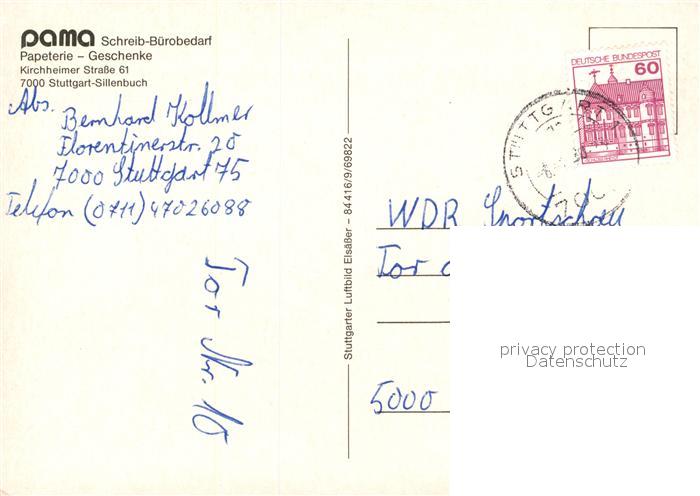 pama Schreib-Bürobedarf
Papeterie – Geschenke
Kirchheimer Straße 61
7000 Stuttgart-Sillenbuch
Abs. Bernhard Kollmer
Florentinerstr. 20
7000 Stuttgart 75
Telefon (0711) 47026088
Tor Nr. 10
Stuttgarter Luftbild Elsäßer – 84416/9/69822
DEUTSCHE BUNDESPOST
60
STUTTGART 1
700
WDR Sportschau
Tor
5000
privacy protection
Datenschutz